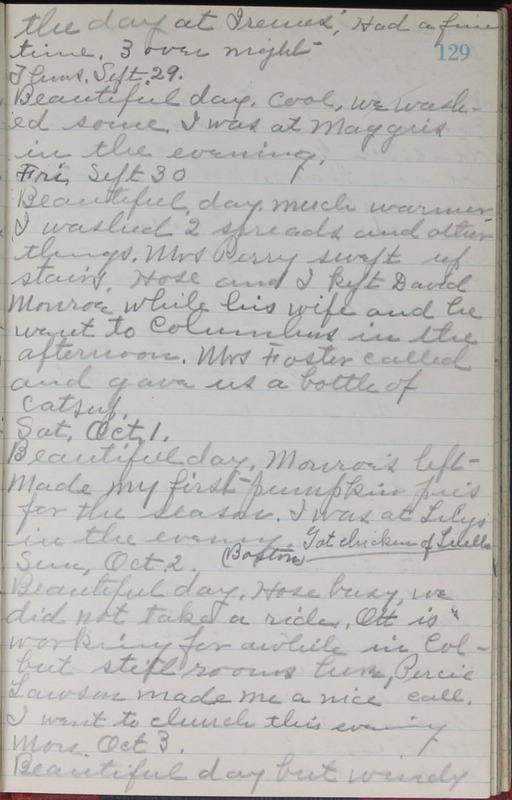 the day at Irenes', Had a fine
time. 3 over night
129
Thurs. Sept. 29.
Beautiful day. Cool, we wash-
ed some. I was at Maggies
in the evening.
Fri, Sept 30
Beautiful day, much warmer.
I washed 2 spreads and other
things. Mrs Perry swept up
stairs. Hose and I kept David
Monroe while his wife and he
went to Columbus in the
afternoon. Mrs Foster called
and gave us a bottle of
catsup.
Sat, Oct, 1.
Beautiful day. Monroe's left-
Made my first pumpkin pies
for the season. I was at Lilys
in the evening Got chicken of Luella
Sun, Oct 2. Boston
Beautiful day. Hose busy, we
did not take a ride, Ott is
working for awhile in Col-
but still rooms here, Percie
Lawson made me a nice call.
I went to church this evening
Mon. Oct 3.
Beautiful day but windy